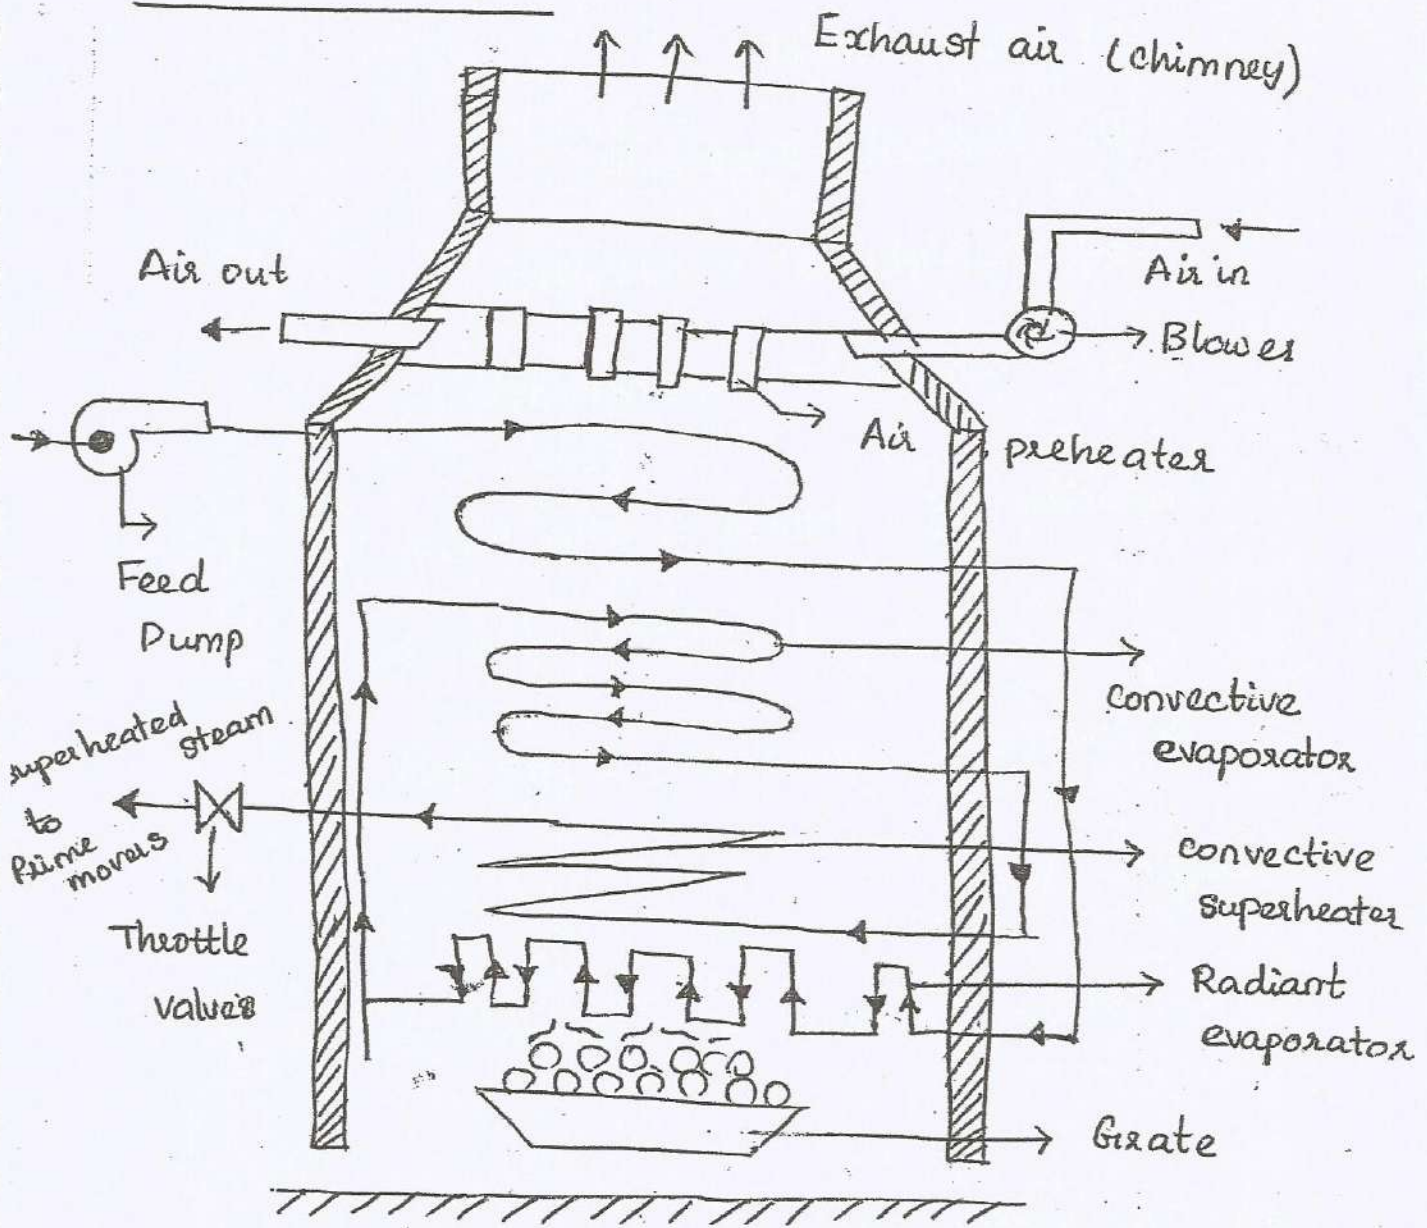 Exhaust air (chimney)
Air out
Air in
Blower
Air preheater
Feed
Pump
convective
evaporator
superheated steam
to
Prime
movers
convective
superheater
Throttle
valves
Radiant
evaporator
Grate